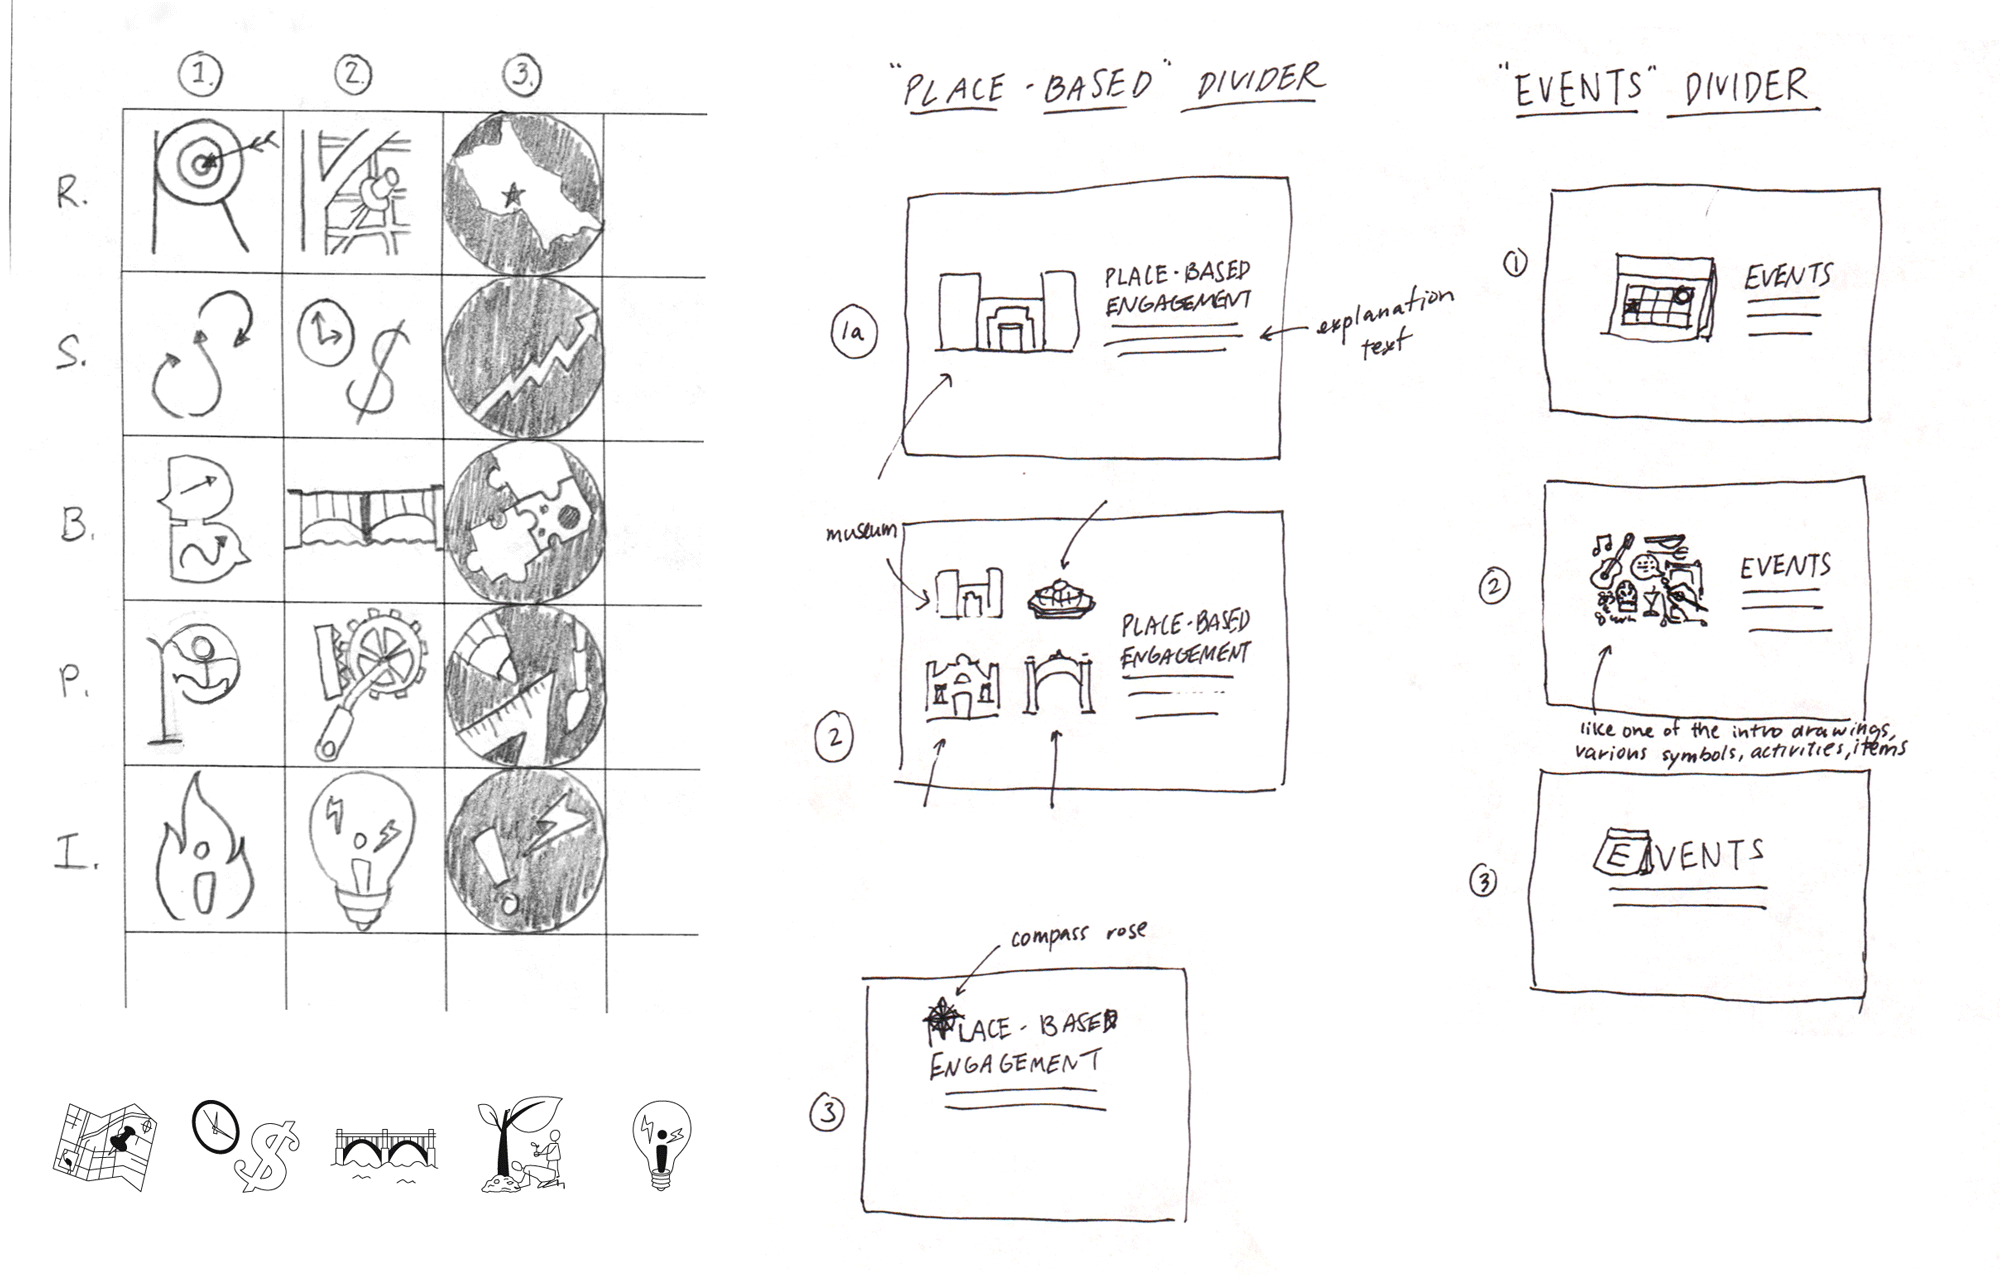 1.
2.
3.
R.
S.
B.
P.
I.
"PLACE-BASED" DIVIDER
1a
PLACE-BASED
ENGAGEMENT
explanation
text
museum
2
PLACE-BASED
ENGAGEMENT
compass rose
3
PLACE-BASED
ENGAGEMENT
"EVENTS" DIVIDER
1
EVENTS
2
EVENTS
like one of the intro drawings,
various symbols, activities, items
3
EVENTS